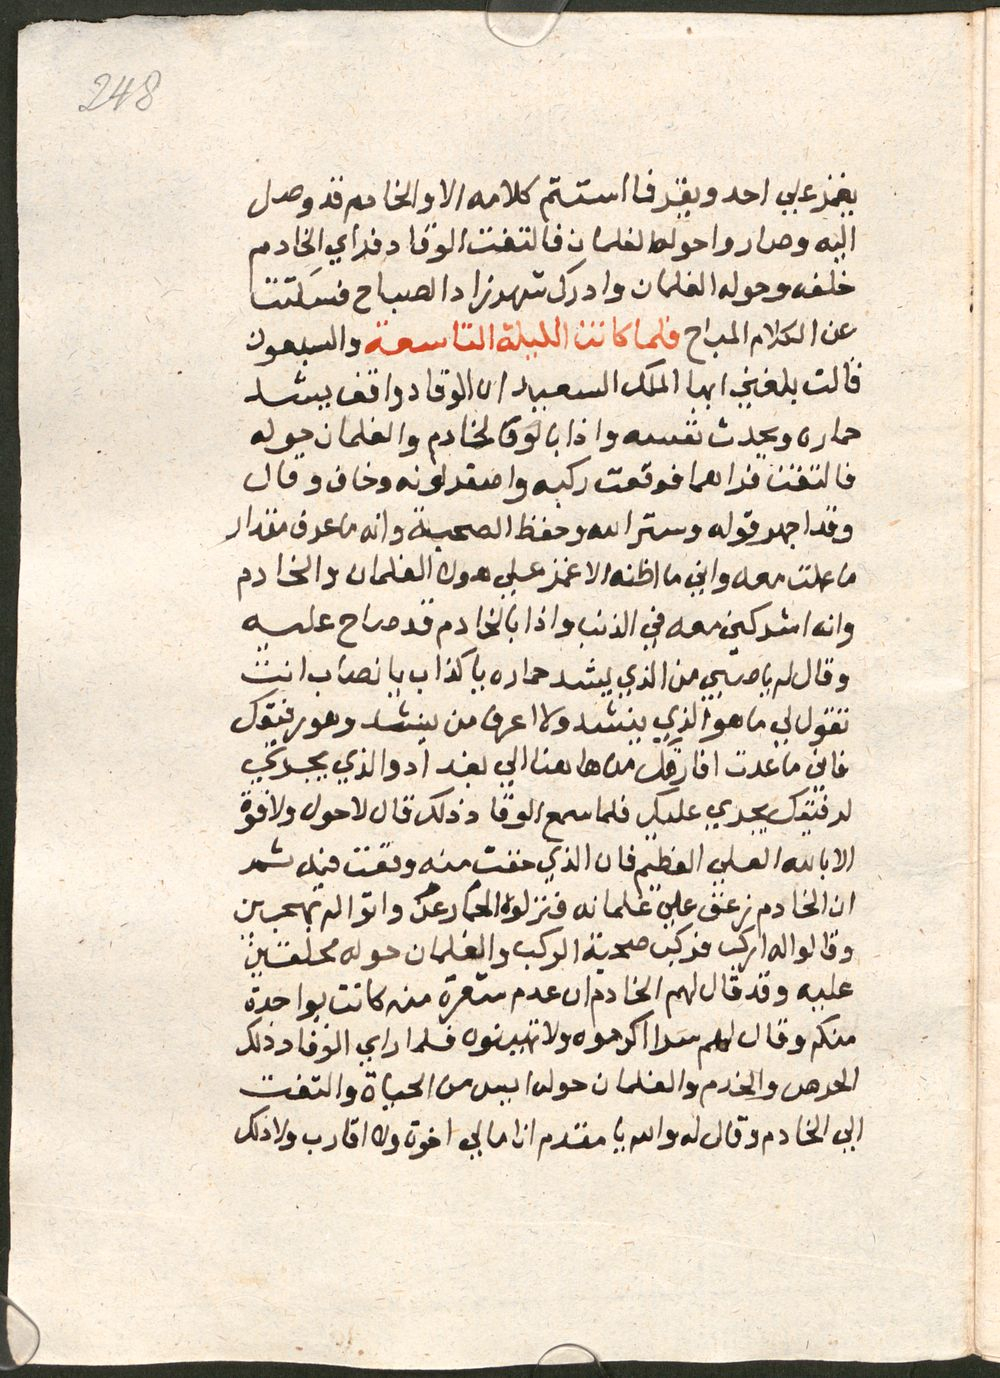 248
يغمز علي احد ويقر فما استتم كلامه الا والخادم قد وصل
اليه وصاروا حوله الغلمان فالتفت الوقاد فراي الخادم
خلفه وحوله الغلمان وادرك شهرزاد الصباح فسكتت
عن الكلام المباح فلما كانت الليلة التاسعة والسبعون
قالت بلغني ايها الملك السعيد ان الوقاد واقف يشد
حماره ويحدث نفسه واذا بالوقا لخادم والغلمان حوله
فالتفت فراهما فوقعت ركبه واصفر لونه وخاف وقال
وقد اجهر قوله وستر الله وحفظ الصحبة وانه ما عرف مقدار
ما عملت معه واني ما اظنه الا غمز علي هولا الغلمان والخادم
وانه اشركني معه في الذنب واذا بالخادم قد صاح عليه
وقال له يا صبي من الذي يشد حماره يا كذاب يا نصاب انت
تقول لي ما هو الذي ينشد ولا اعرف من ينشد وهو رفيقك
فاني ما عدت افارقك من هاهنا الي بغداد والذي يجري
لرفيقك يجري عليك فلما سمع الوقاد ذلك قال لاحول ولا قوة
الا بالله العلي العظيم فان الذي خفت منه وقعت فيه ثم
ان الخادم زعق علي غلمانه فنزلوه الحمار عن واتوا له بهجين
وقالوا له اركب فركب صحبة الركب والغلمان حوله محلقين
عليه وقد قال لهم الخادم ان عدم شعرة منه كانت بواحدة
منكم وقال لهم سرا اكرموه ولا تهينوه فلما راي الوقاد ذلك
الحرص والخدم والغلمان حوله ايس من الحياة والتفت
الي الخادم وقال له والله يا مقدم انا مالي اخوة ولا اقارب ولا ذلك